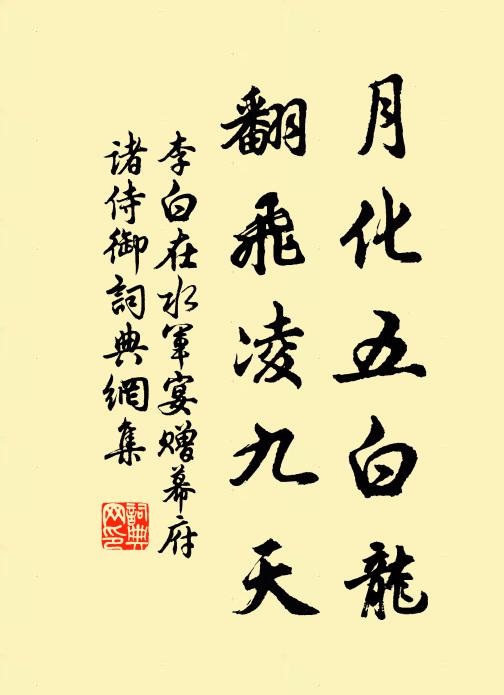 月化五白龍
翻飛凌九天
李白在水軍宴贈幕府
诸侍御詞典網集
詞典網印